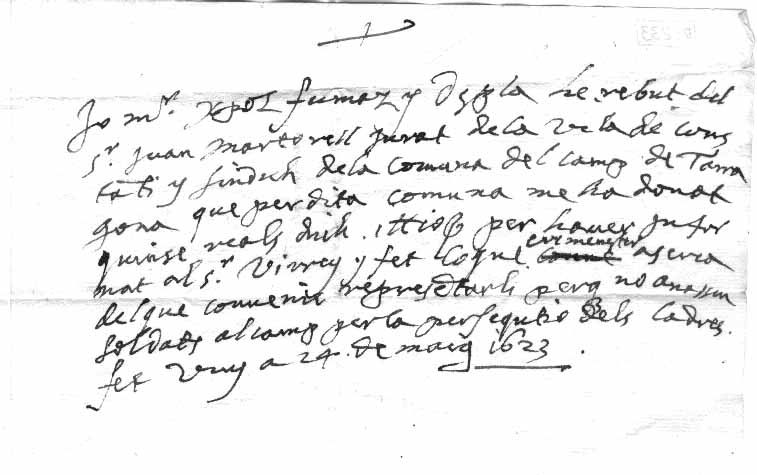 Jo mr. xpõl fumaz y Dspla he rebut del
sr. Juan martorell Jurat de la Vila de Cons
tati y sindich de la Comuna del Camp de Tarra
gona que per dita comuna me ha donat
quinse reals dich per haver Infor
mat al sr. Virrey y fet lo que ere menester aserca
del que convenie represẽtarli perq̃ no anassin
soldats al camp per la persequtio dels ladres.
fet Vuy a 24 de maig 1623.